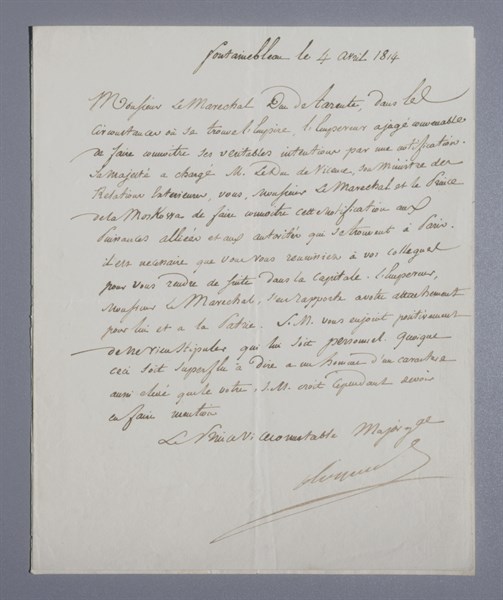 fontainebleau le 4 avril 1814
Monsieur Le Marechal Duc de tarente, dans les
circonstances où se trouve l'Empire, l'Empereur a jugé convenable
de faire connoitre ses veritables intentions par une notification.
Sa majesté a chargé M. Le Duc de Vicence, son Ministre des
Relations Exterieures, vous, Monsieur Le Marechal et le Prince
de la Moskowa de faire connoitre cette notification aux
Puissances alliées et aux autorités qui se trouvent à Paris.
il est necessaire que vous vous reunissiez à vos collegues
pour vous rendre de suite dans la Capitale. l'Empereur,
Monsieur le Marechal, s'en rapporte à votre attachement
pour lui et à la Patrie. S. M. vous enjoint positivement
de ne rien stipuler qui lui soit personnel. Quoique
ceci soit superflu à dire à un homme d'un caractere
aussi elevé que le votre, S. M. croit cependant devoir
en faire mention
Le Prince Viceconnetable Major gal